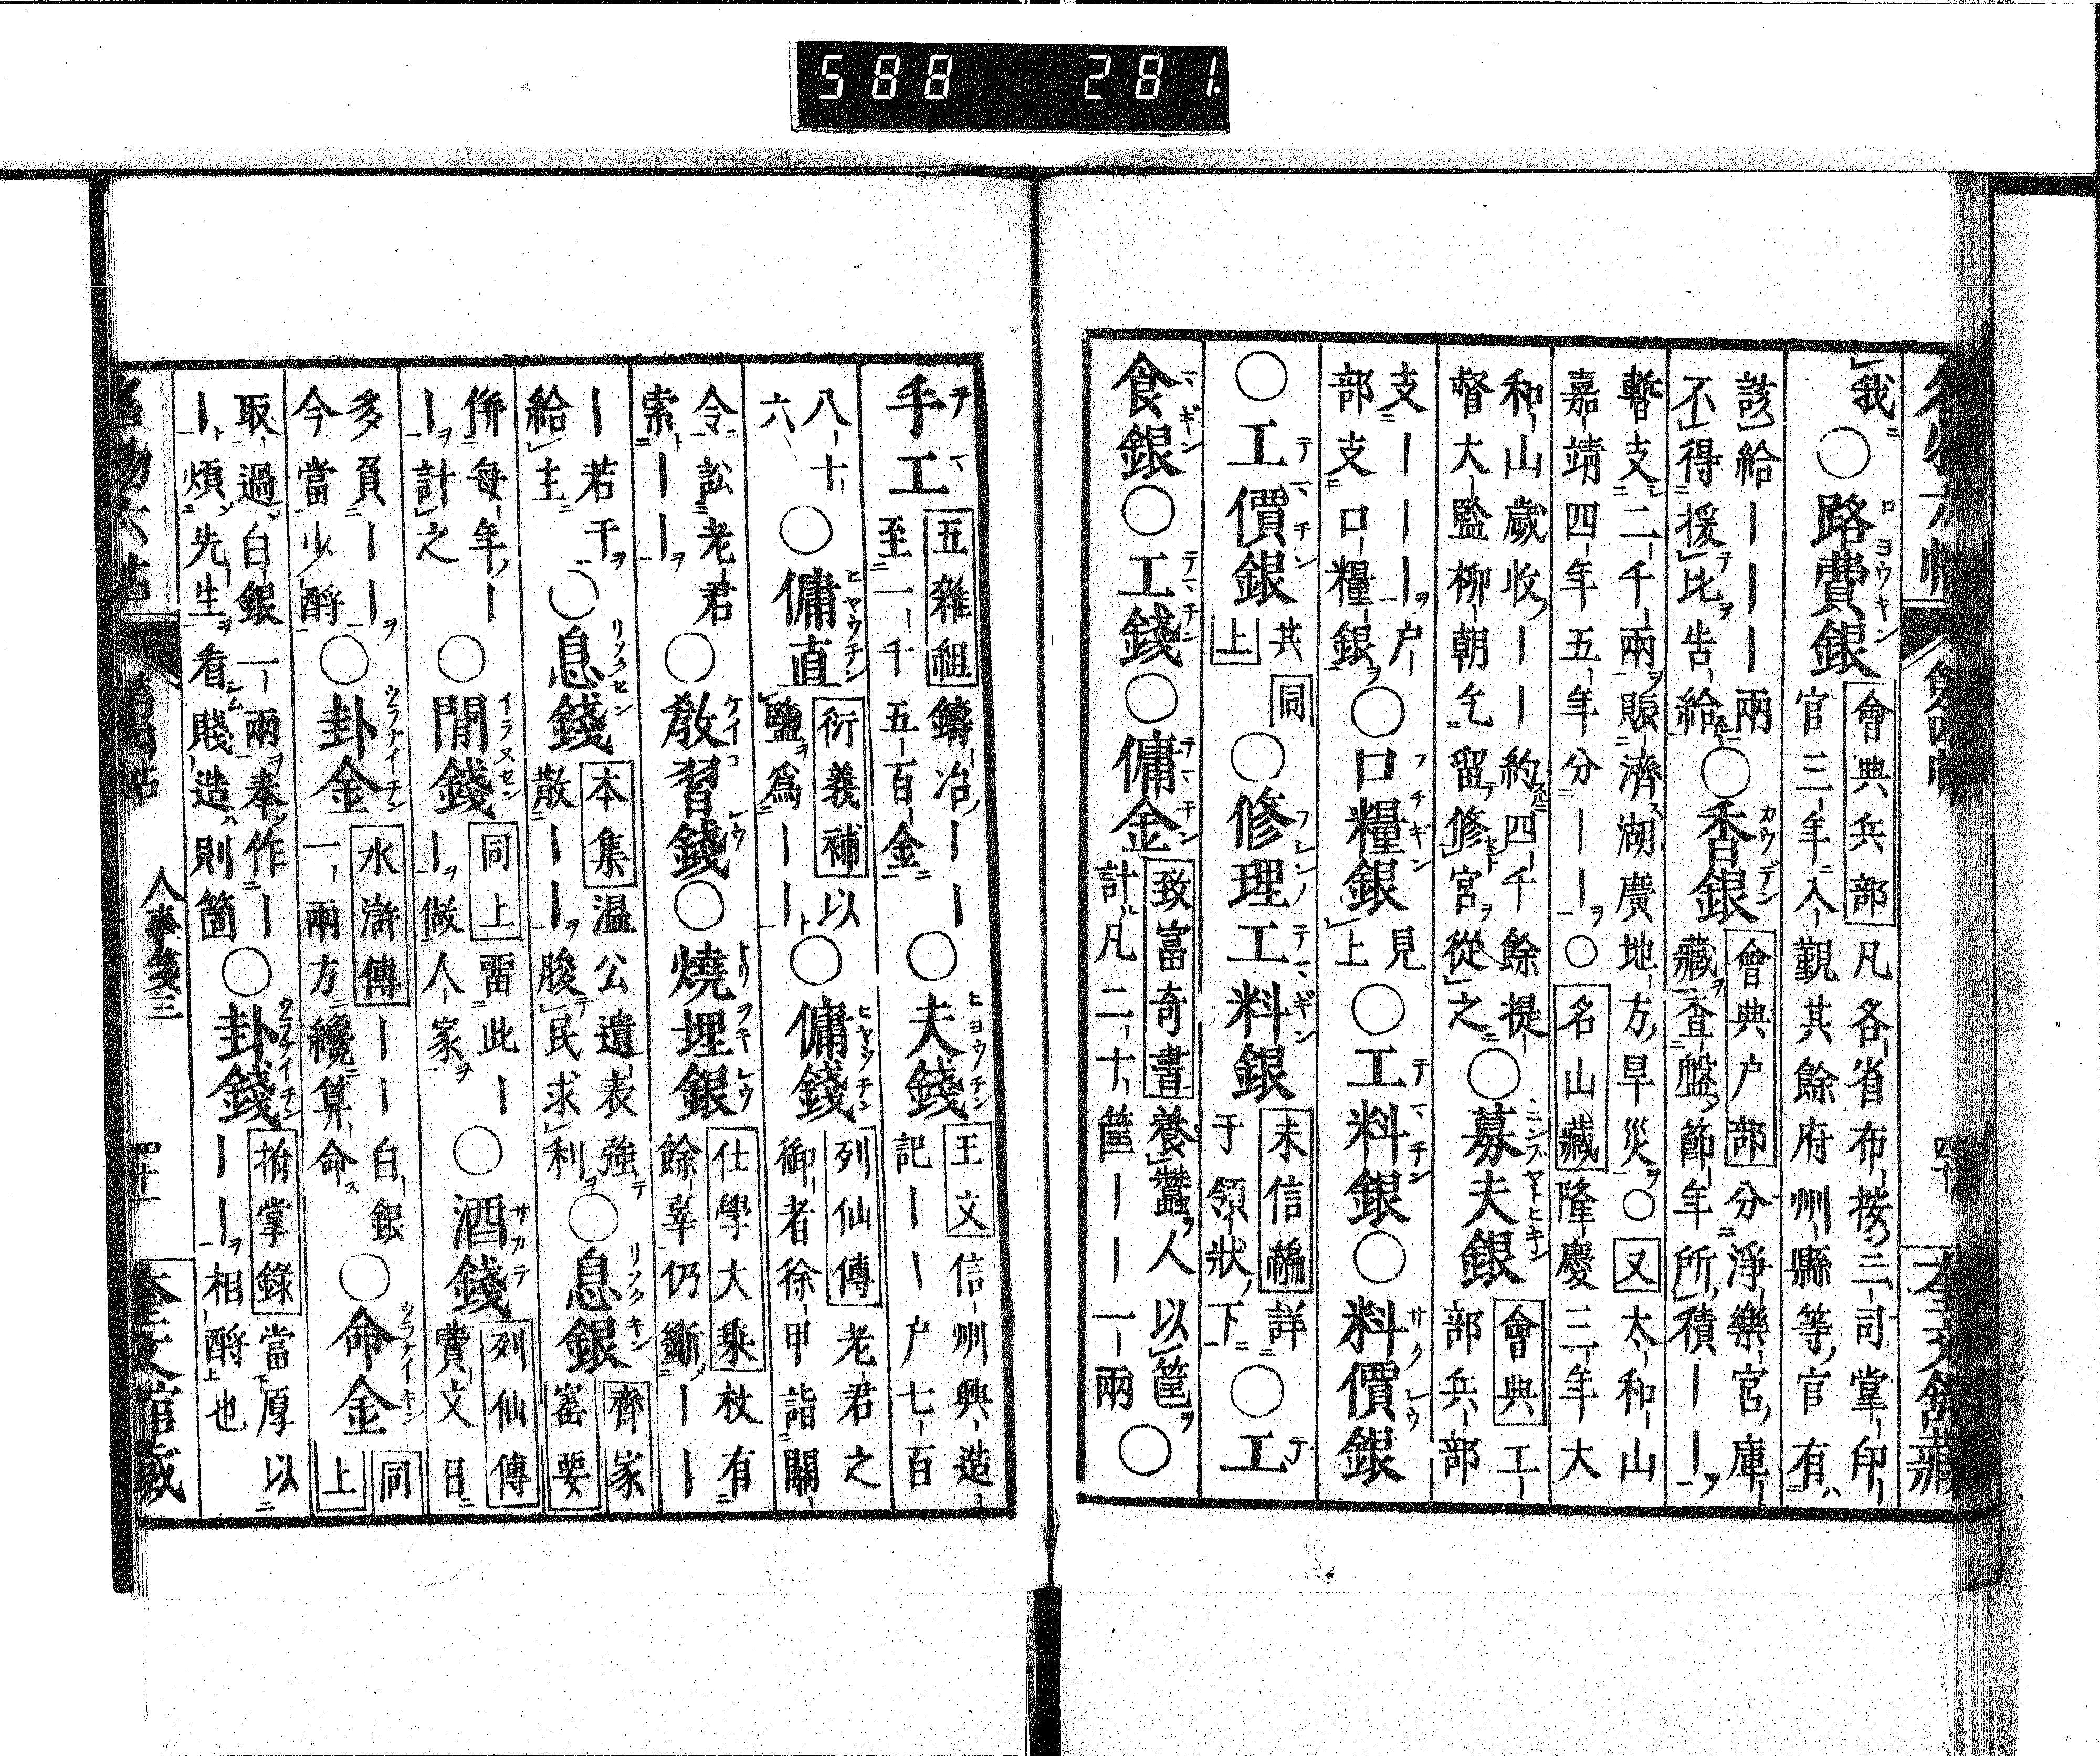 588 281
我○路費銀 會典兵部 凡各省布按三司掌印
官三年入覲其餘府州縣等官有
該給丨丨丨兩
不得援比告給○香銀 會典戸部 分淨樂宮庫
藏査盤節年所積丨丨
暫支二千兩賑濟湖廣地方旱災○又太和山
嘉靖四年五年分丨丨○名山藏 隆慶三年大
和山歲收丨丨約四千餘提
督大監柳朝乞留修宮從之○募夫銀 會典 工
部兵部
支丨丨丨戸
部支口糧銀○口糧銀 見上○工料銀○料價銀
○工價銀 共同上○修理工料銀 未信編 詳
于領狀下○工
食銀○工錢○傭金 致富奇書 養蠶人以筐
計凡二十筐丨丨一兩○
手工 五雜組 鑄冶丨丨
至一千五百金○夫錢 王文 信州興造
記丨丨戸七百
八十
六○傭直 衍義補 以
鹽爲丨丨○傭錢 列仙傳 老君之
御者徐甲詣關
令訟老君
索丨丨○教習錢○燒埋銀 仕學大乘 杖有
餘辜仍斷丨丨
丨若干
給主○息錢 本集 温公遺表 強
散丨丨朘民求利○息銀 齊家
寳要
併每年丨
丨計之○閒錢 同上 畱此丨
丨做人家○酒錢 列仙傳
費文日
多負丨丨
今當少酹○卦金 水滸傳 丨丨白銀
一兩方纔算命○命金 同
上
取過白銀一兩奉作丨
丨煩先生看賤造則箇○卦錢 拊掌錄 當厚以
丨丨相酹也
人事箋三
四十一
奎文館藏